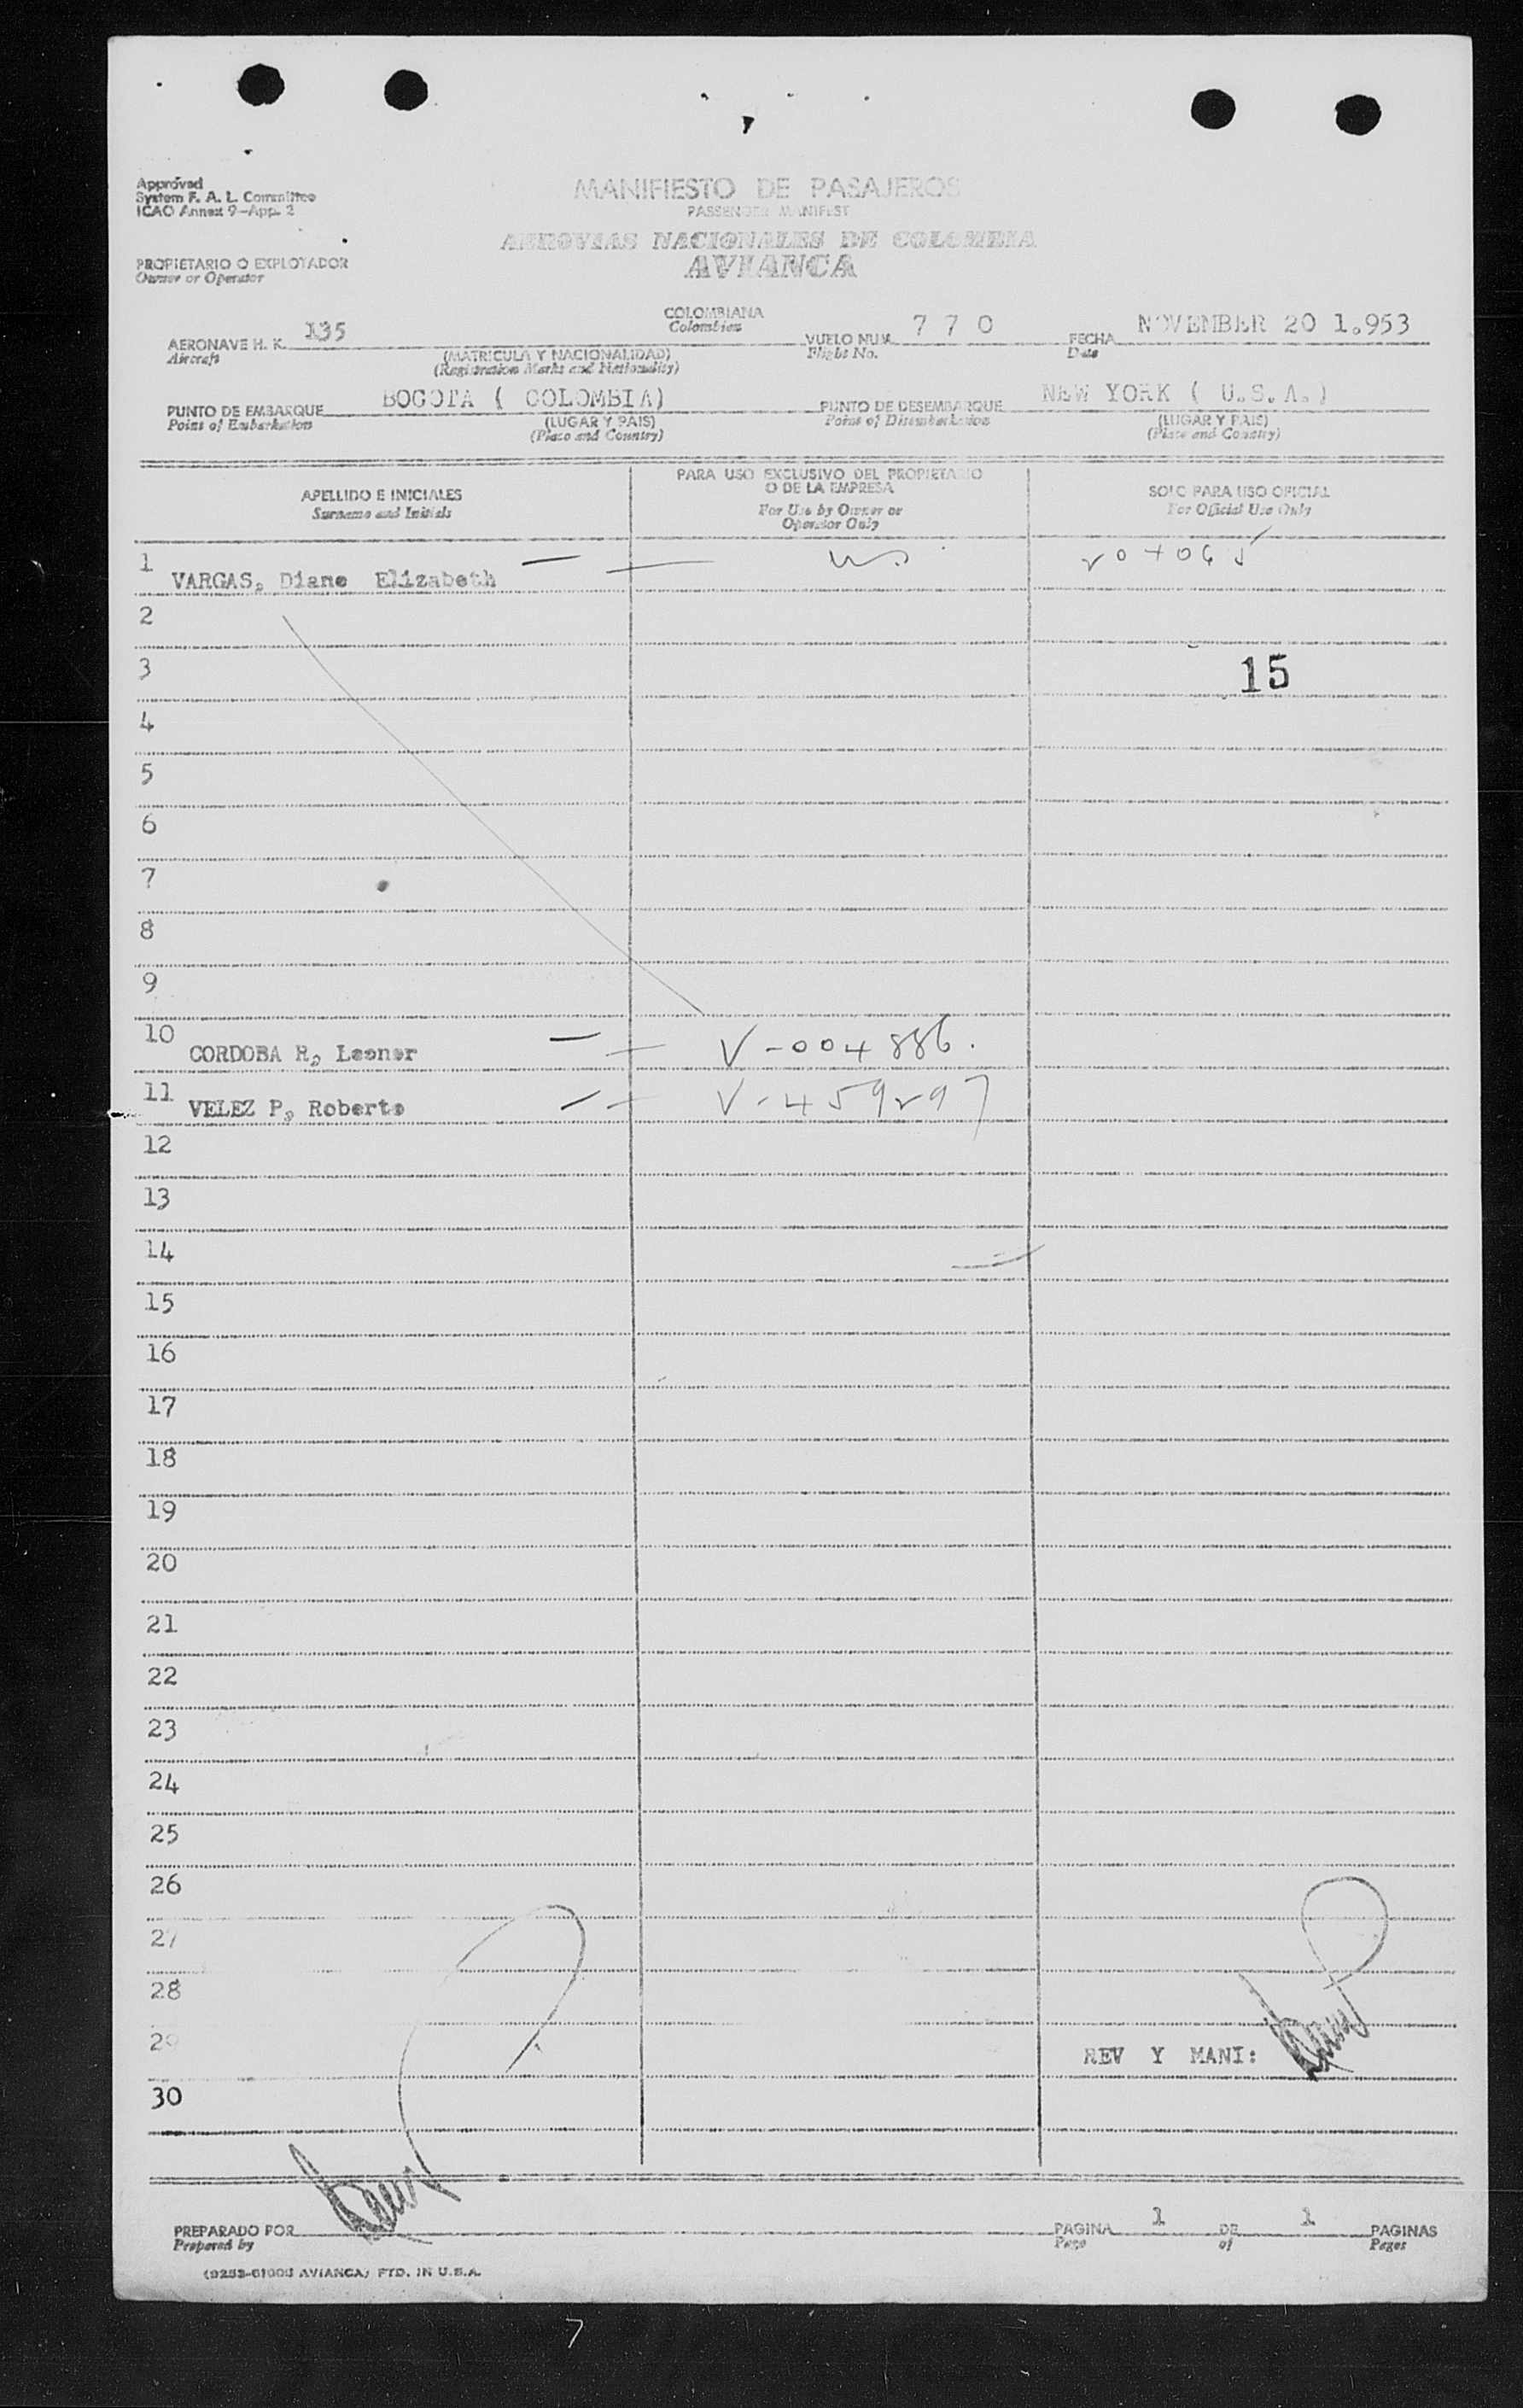 Approved
System F. A. L. Committee
ICAO Annex 9-App. 2
MANIFIESTO DE PASAJEROS
PASSENGER MANIFEST
AEROVIAS NACIONALES DE COLOMBIA
AVIANCA
PROPIETARIO O EXPLOTADOR
Owner or Operator
AERONAVE H. K. 135 COLOMBIANA VUELO NUM. 7 7 0 FECHA NOVEMBER 20 1.953
Aircraft Colombian Flight No. Date
(MATRICULA Y NACIONALIDAD)
(Registration Marks and Nationality)
PUNTO DE EMBARQUE BOGOTA ( COLOMBIA) PUNTO DE DESEMBARQUE NEW YORK ( U.S.A.)
Point of Embarkation (LUGAR Y PAIS) Point of Disembarkation (LUGAR Y PAIS)
(Place and Country) (Place and Country)
APELLIDO E INICIALES
Surname and Initials
PARA USO EXCLUSIVO DEL PROPIETARIO
O DE LA EMPRESA
For Use by Owner or
Operator Only
SOLO PARA USO OFICIAL
For Official Use Only
1 VARGAS, Diane Elizabeth
2
3 15
4
5
6
7
8
9
10 CORDOBA R, Leonor V-004886.
11 VELEZ P, Roberto V-459297
12
13
14
15
16
17
18
19
20
21
22
23
24
25
26
27
28
29 REV Y MANI:
30
PREPARADO POR PAGINA 1 DE 1 PAGINAS
Prepared by Page of Pages
AVIANCA) PTD. IN U.S.A.
7